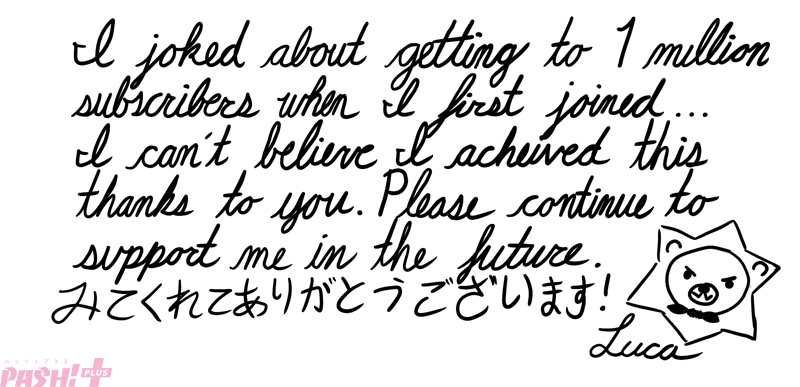 I joked about getting to 1 million
subscribers when I first joined...
I can't believe I acheived this
thanks to you. Please continue to
support me in the future.
みてくれてありがとうございます!
Luca
パッシュプラス
PASH! PLUS